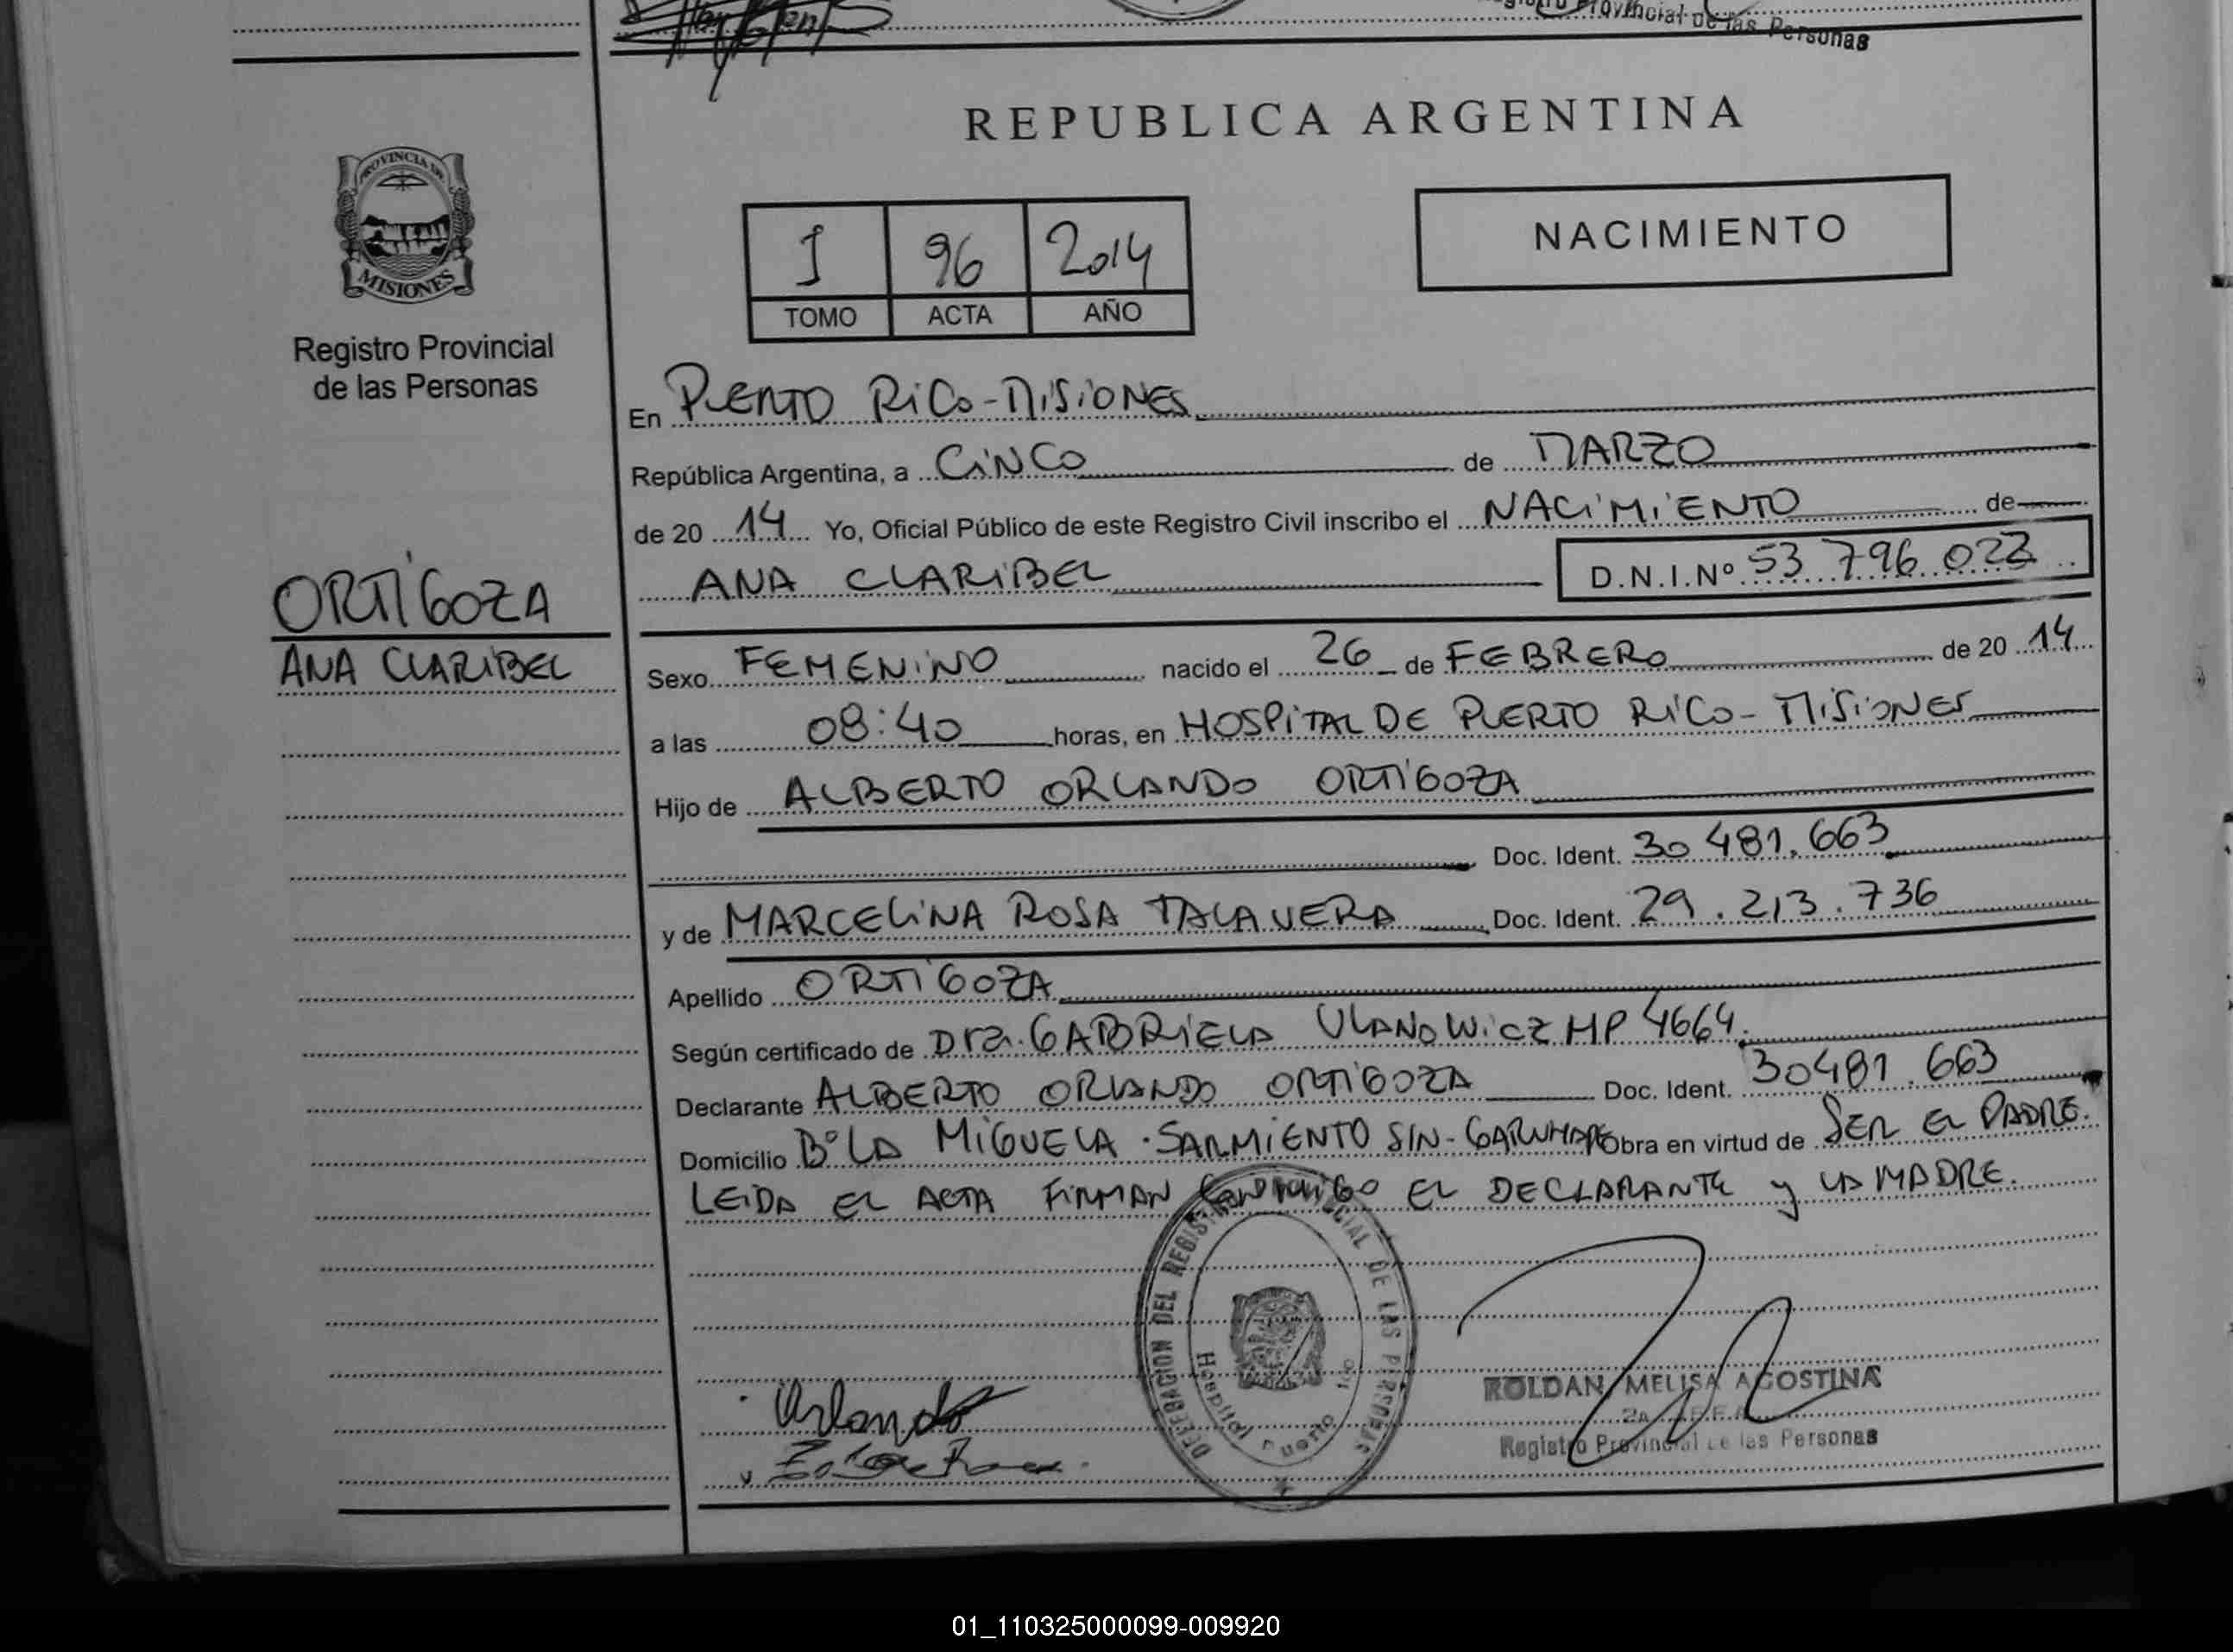 Provincial de las Personas
REPUBLICA ARGENTINA
PROVINCIA DE
MISIONES
Registro Provincial
de las Personas
I 96 2014
TOMO ACTA AÑO
NACIMIENTO
En PUERTO RICO - MISIONES
República Argentina, a CINCO de MARZO
de 20 14 Yo, Oficial Público de este Registro Civil inscribo el NACIMIENTO de
ANA CLARIBEL D.N.I.Nº 53 796 022
ORTIGOZA
ANA CLARIBEL
Sexo FEMENINO nacido el 26 de FEBRERO de 20 14
a las 08:40 horas, en HOSPITAL DE PUERTO RICO - MISIONES
Hijo de ALBERTO ORLANDO ORTIGOZA
Doc. Ident. 30 481.663
y de MARCELINA ROSA TALAVERA Doc. Ident. 29.213.736
Apellido ORTIGOZA
Según certificado de Dra. GABRIELA ULANOWICZ MP 4664.
Declarante ALBERTO ORLANDO ORTIGOZA Doc. Ident. 30481.663
Domicilio Bº LA MIGUELA - SARMIENTO S/N - GARUHAPE Obra en virtud de SER EL PADRE.
LEIDA EL ACTA FIRMAN CONMIGO EL DECLARANTE y LA MADRE.
DELEGACION DEL REGISTRO PROVINCIAL DE LAS PERSONAS
Hospital Puerto Rico
Orlando
ROLDAN MELISA AGOSTINA
Registro Provincial de las Personas
01_110325000099-009920